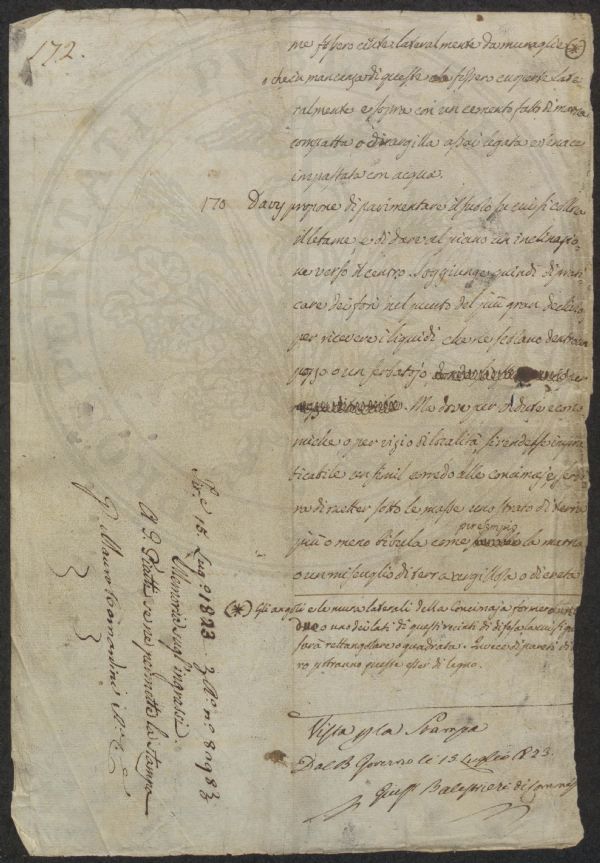 172.
me fossero cinte lateralmente da muraglie (*)
o che in mancanza di queste fossero coperte late-
ralmente e sopra con un cemento fatto di marna
compatta o di argilla assai legata e tenace
impastata con acqua.
170 Davy propone di pavimentare il suolo su cui si colloca
il letame e di dare al piano un inclinazio-
ne verso il centro. Soggiunge quindi di prati-
care dei fori nel punto del più gran declivio
per ricevere i liquidi che ne scolano dentro un
pozzo o un serbatojo
Ma dove per vedute econo-
miche o per vizio di località si rendesse impra-
ticabile un simil corredo alle concimaje,
di metter sotto le masse uno strato di terra
più o meno bibula come per esempio la marna
o un miscuglio di terra argillosa o di creta
(*) Gli angoli e le mura laterali della Concimaja formeranno
due o uno dei lati di questi recinti di difesa la cui
sarà rettangolare o quadrata. Invece di pareti di
ro potranno queste esser di legno.
Visto p la Stampa
Dal B Governo le 15 Luglio 1823.
Giusp Balestrieri di
15. Lug.o 1823
Memoria sugl'ingrassi.
A G. Piatti se ne permette la stampa
P. Mauro Bernardini